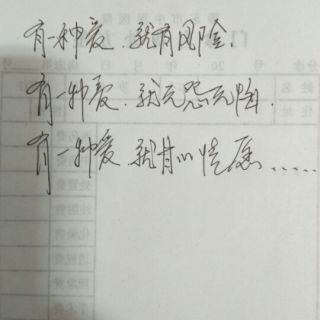 有一种爱.就有风险.
有一种爱.就无怨无悔.
有一种爱.就甘心情愿......